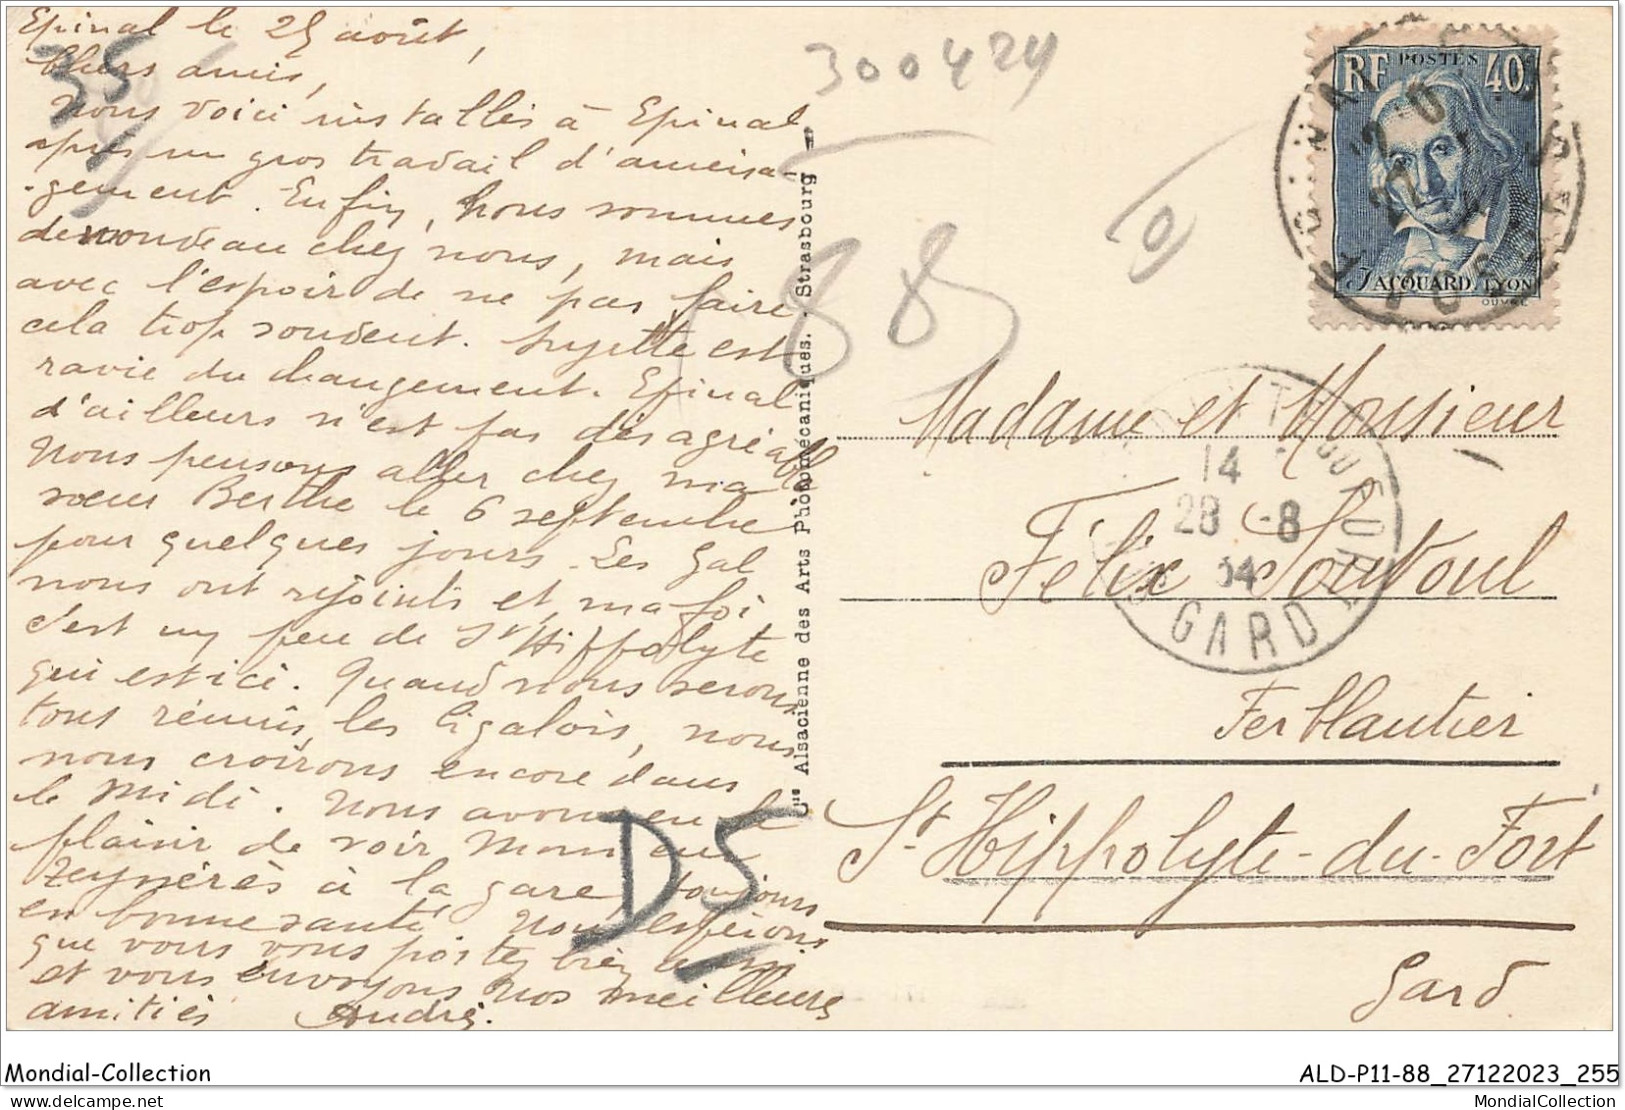 Epinal le 25 août,
Chers amis,
Nous voici installés à Epinal
après un gros travail d'aména-
gement. Enfin, nous sommes
de nouveau chez nous, mais
avec l'espoir de ne pas faire
cela trop souvent. Suzette est
ravie du changement. Epinal
d'ailleurs n'est pas désagréable
Nous pensons aller chez ma
sœur Berthe le 6 septembre
pour quelques jours. Les Gal
nous ont rejoints et, ma foi
c'est un peu de St Hippolyte
qui est ici. Quand nous serons
tous réunis, les Cigalois, nous
nous croirons encore dans
le Midi. Nous avons eu le
plaisir de voir
à la gare, toujours
en bonne santé. Nous espérons
que vous vous portez bien
et vous envoyons nos meilleures
amitiés André.
35
300424
88
D5
Cie Alsacienne des Arts Photomécaniques. - Strasbourg
RF POSTES 40c
JACQUARD. LYON
OUVRÉ
14
28 -8
34
GARD
Madame et Monsieur
Félix Souvoul
Ferblantier
St Hippolyte-du-Fort
Gard
Mondial-Collection
ALD-P11-88_27122023_255
delcampe.net
MondialCollection